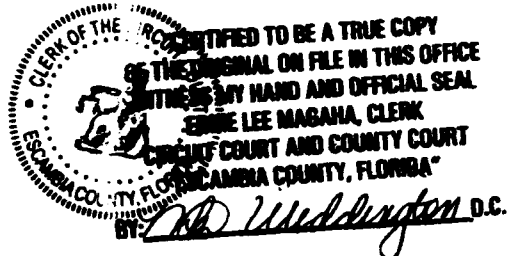 CLERK OF THE CIRCUIT
ESCAMBIA COUNTY, FLORIDA
CERTIFIED TO BE A TRUE COPY
OF THE ORIGINAL ON FILE IN THIS OFFICE
WITNESS MY HAND AND OFFICIAL SEAL
ERNIE LEE MAGAHA, CLERK
CIRCUIT COURT AND COUNTY COURT
ESCAMBIA COUNTY, FLORIDA"
BY: Weddington D.C.